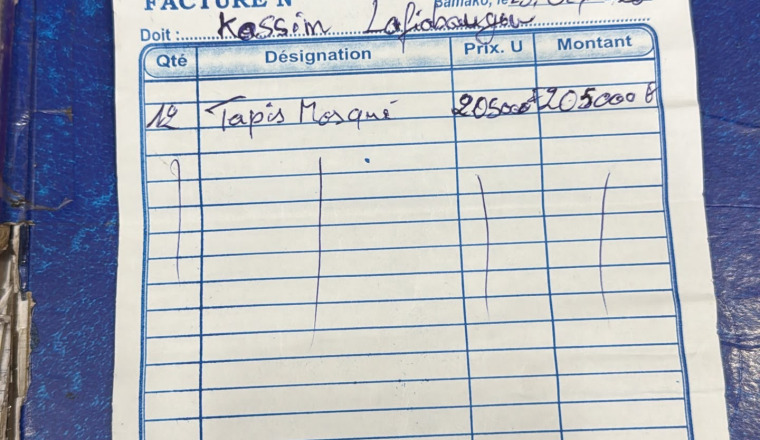 FACTURE N°
Bamako, le
Doit : Kassim Lafiabougou
Qté Désignation Prix. U Montant
12 Tapis Mosqué 205000F 205000F